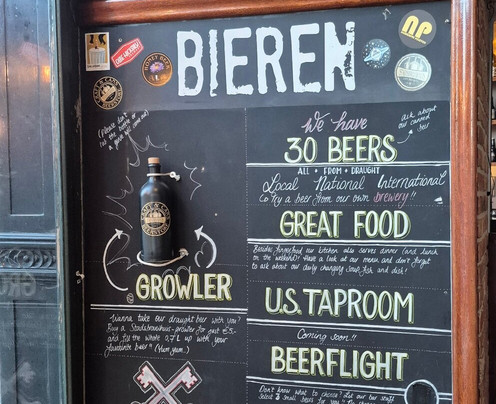 BIEREN
NP
(Please don't
We have
ask about
our canned
beer
30 BEERS
ALL • FROM • DRAUGHT
Local National International
Go try a beer from our own brewery!!
GREAT FOOD
Besides fingerfood our kitchen also serves dinner (and lunch
on the weekend)! Have a look at our menu and don't forget
to ask about our daily changing Soup, Fish and dish!
GROWLER
U.S. TAPROOM
Wanna take our draught beer with you?
Buy a Stadsbrouwhuis-growler for just €5,-
and fill the whole 0,7 L up with your
favourite beer" (Yum yum)
Coming soon!!
BEERFLIGHT
Don't know what to choose? Let our bar staff
Select 3 Small beers for you